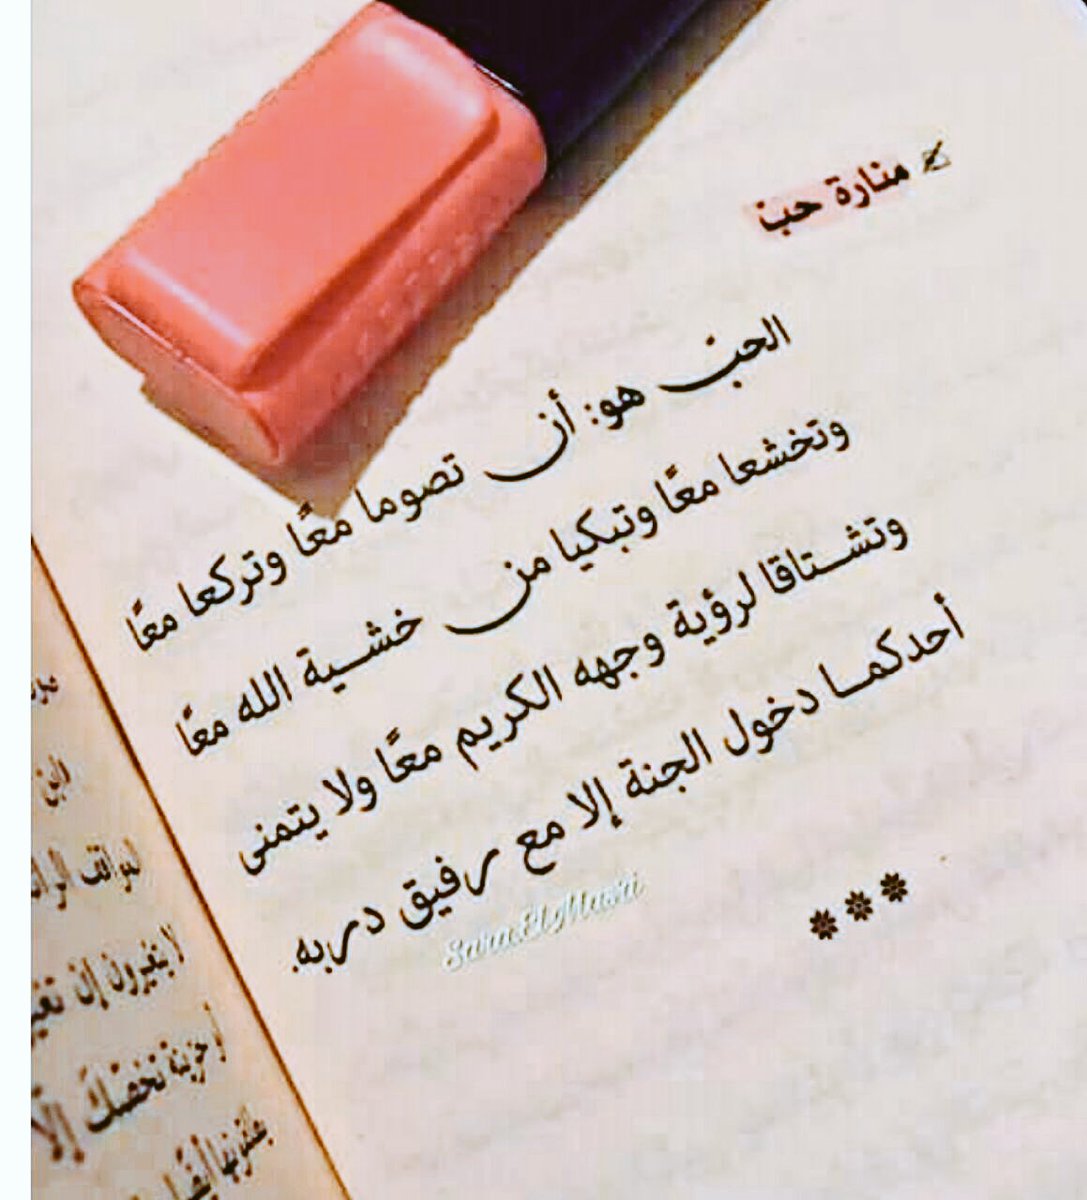 ✍ منارة حب
الحب هو: أن تصوما معًا وتركعا معًا
وتخشعا معًا وتبكيا من خشية الله معًا
وتشتاقا لرؤية وجهه الكريم معًا ولا يتمنى
أحدكما دخول الجنة إلا مع رفيق دربه.
Sara El Masri
***
لا يتغيرون إن